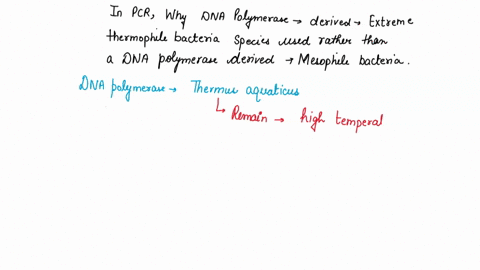 In PCR, Why DNA Polymerase → derived → Extreme
thermophile bacteria species used rather than
a DNA polymerase derived → Mesophile bacteria.
DNA polymerase → Thermus aquaticus
↳ Remain → high temperal